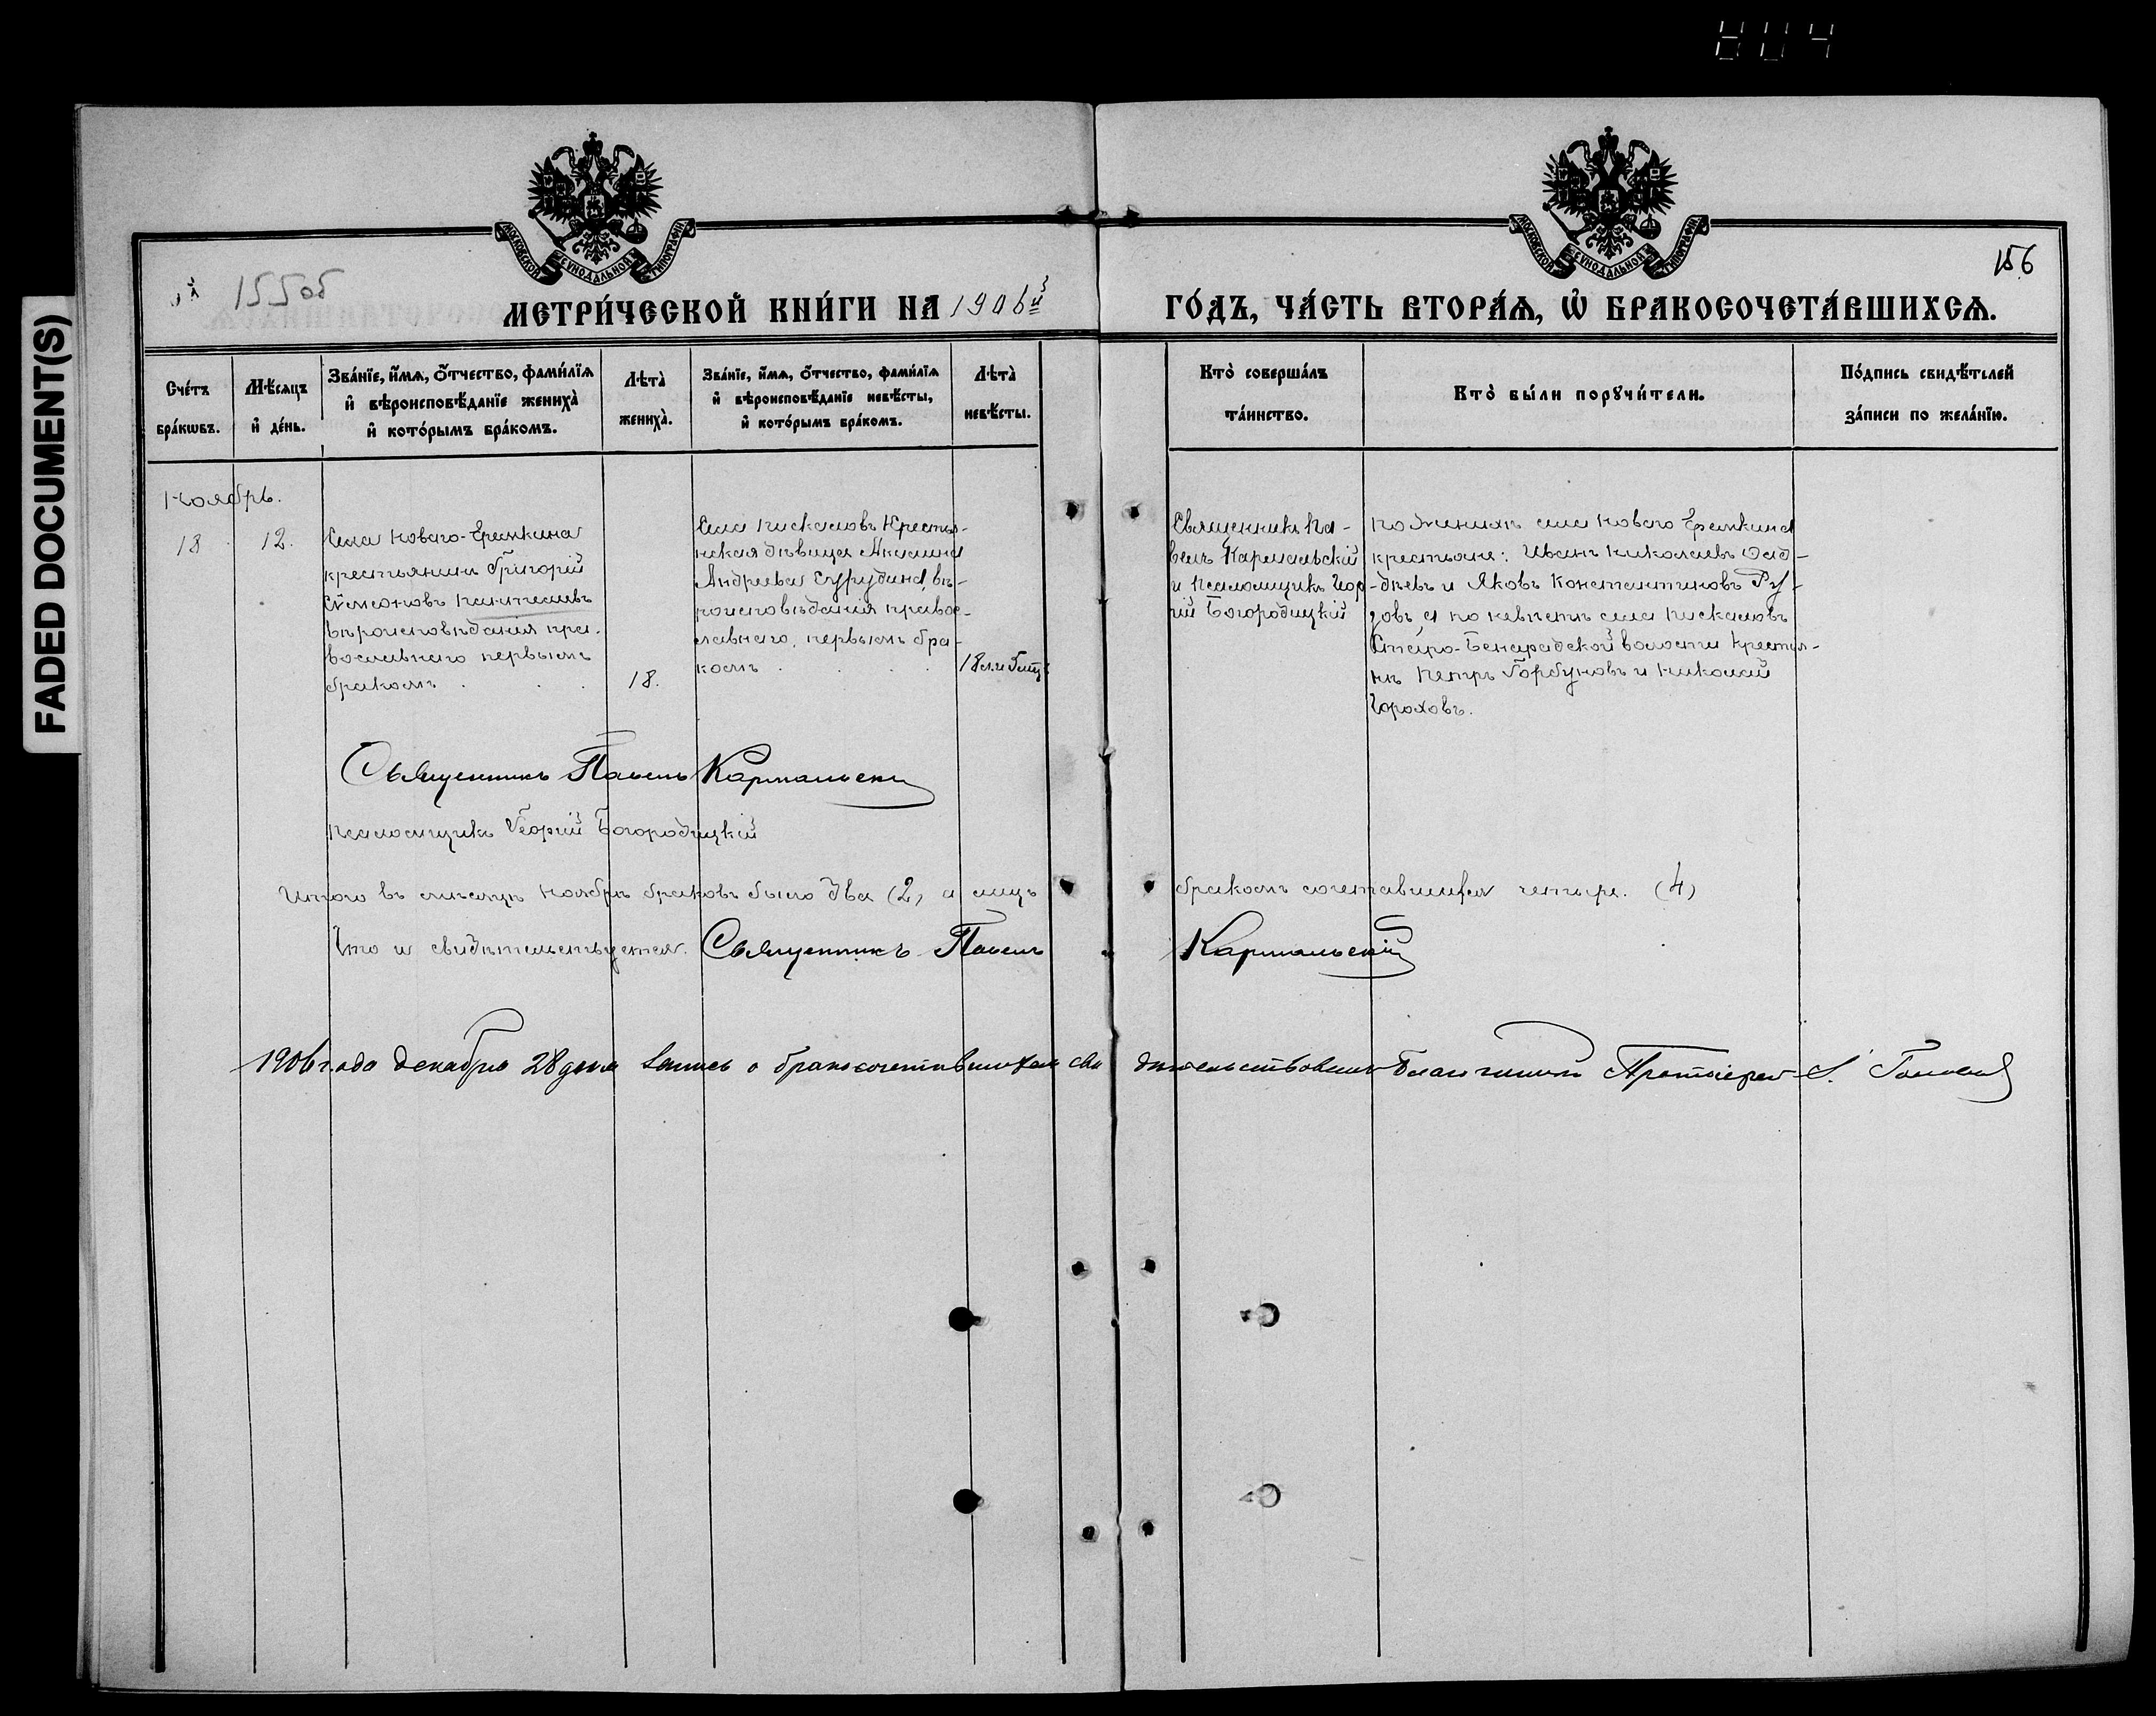 804
FADED DOCUMENT(S)
МОСКОВСКОЙ СУНОДАЛЬНОЙ ТИПОГРАФІИ
МОСКОВСКОЙ СУНОДАЛЬНОЙ ТИПОГРАФІИ
155об
156
МЕТРИ́ЧЕСКОЙ КНИ́ГИ НА 1906й
ГО́ДЪ, ЧА́СТЬ ВТОРА́Ѧ, Ѡ҆ БРАКОСОЧЕТА́ВШИХСѦ.
Сче́тъ
бра́кѡвъ.
Мѣ́сяцъ
и҆ де́нь.
Зва́нїе, и҆́мѧ, ѻ҆́тчество, фами́лїѧ
и҆ вѣроисповѣ́данїе жениха̀
и҆ кото́рымъ бра́комъ.
Лѣта̀
жениха̀.
Зва́нїе, и҆́мѧ, ѻ҆́тчество, фами́лїѧ
и҆ вѣроисповѣ́данїе невѣ́сты,
и҆ кото́рымъ бра́комъ.
Лѣта̀
невѣ́сты.
Кто̀ соверша́лъ
та́инство.
Кто̀ бы́ли порꙋчи́тели.
По́дпись свидѣ́телей
за́писи по жела́нїю.
Ноябрь.
18
12.
Села Новаго-Еремкина
крестьянинъ Григорій
Сѵмеоновъ Пантелеевъ
вѣроисповѣданія пра-
вославнаго первымъ
бракомъ
18.
Села Пискаловъ Крестья-
нская дѣвица Акилина
Андреева Сурудина, вѣ-
роисповѣданія правос-
лавнаго, первымъ бра-
комъ
18 л. и 6 мѣ
Священникъ Па-
велъ Кармальскій
и Псаломщикъ Геор
гій Богородицкій
По женихѣ села Новаго Еремкина
крестьяне: Иванъ Николаевъ
и Яковъ Константиновъ
а по невѣстѣ села Пискаловъ
Старо-Бинарадской волости крестья-
не Петръ Горбуновъ и Николай
Гороховъ.
Священникъ Павелъ Кармальскій
Псаломщикъ Георгій Богородицкій
Итого въ мѣсяцѣ ноябрѣ браковъ было два (2) а лицъ
бракомъ сочетавшихся четыре. (4)
Что и свидѣтельствуется. Священникъ Павелъ
Кармальскій
1906 года Декабря 28 дня запись о бракосочетавшихся сви
дѣтельствовалъ Благочинный Протоіерей